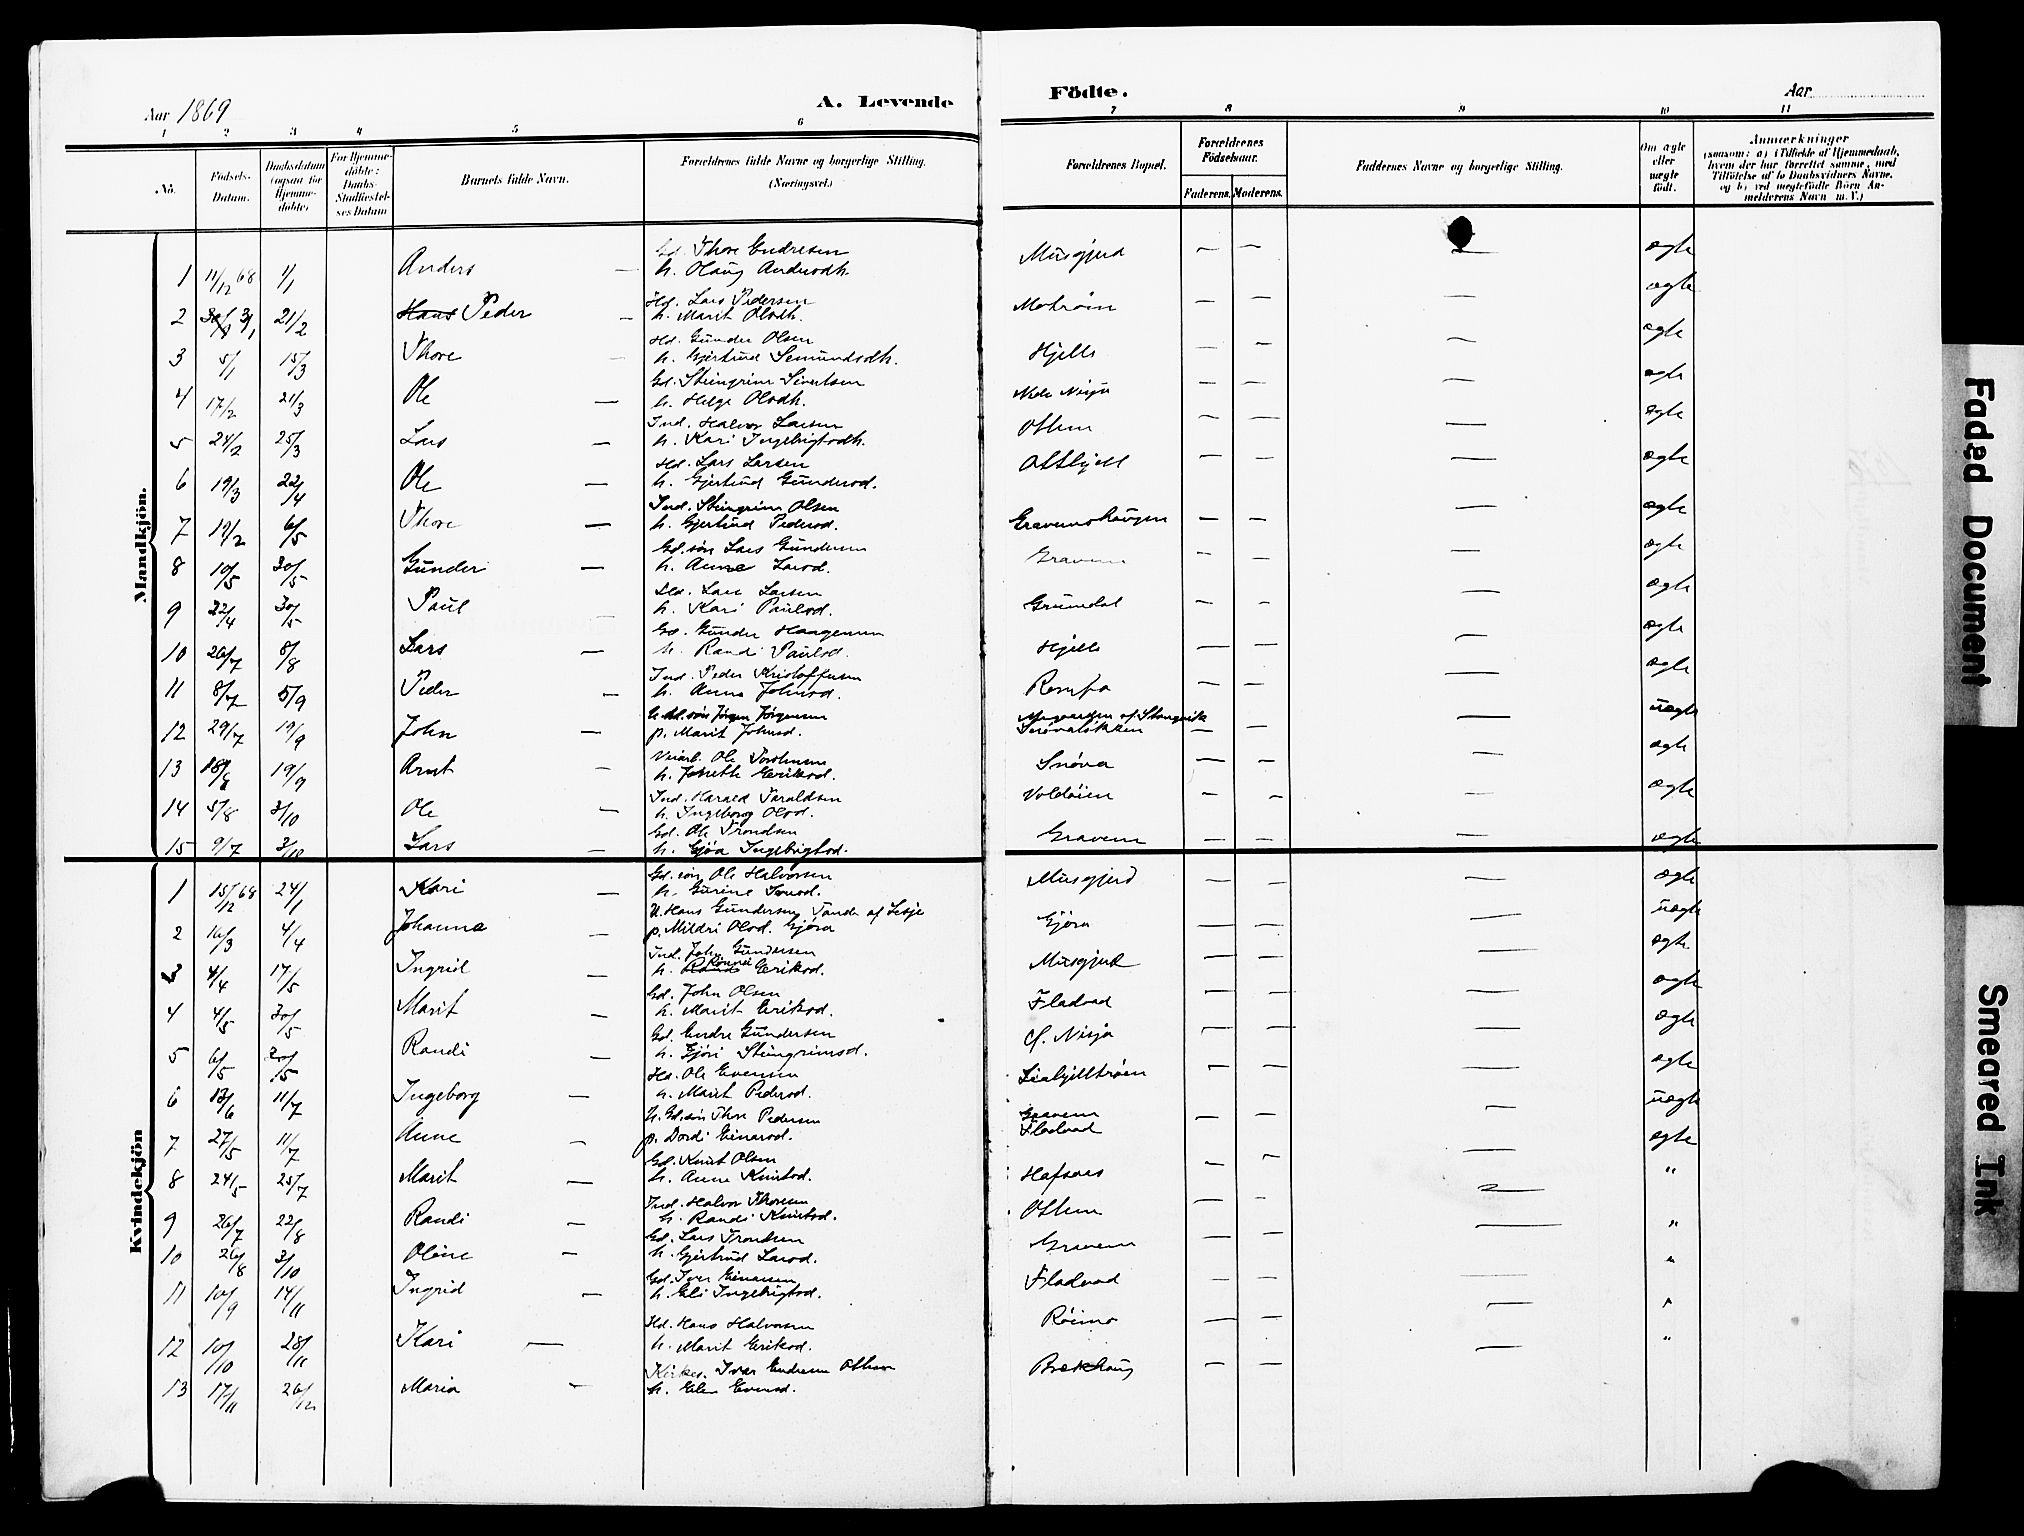 Aar 1869
A. Levende
Födte.
Aar
1 2 3 4 5 6 7 8 9 10 11
No.
Födsels-Datum.
Daabsdatum (ogsaa for Hjemmedöbte)
For Hjemmedöbte: Daabs-Stadfæstelses Datum
Barnets fulde Navn.
Forældrenes fulde Navne og borgerlige Stilling.
(Næringsvei.)
Forældrenes Bopæl.
Forældrenes Födselsaar.
Faderens. Moderens.
Faddernes Navne og borgerlige Stilling.
Om ægte eller uægte födt.
Anmærkninger
(saasom: a) i Tilfælde af Hjemmedaab, hvem der har forrettet samme, med Tilföielse af to Daabsvidners Navne. og b) ved uægtefödte Börn Anmelderens Navn m. V.)
Mandkjön.
1 11/12 68 1/1 Anders — Gd. Thore Endresen
h. Olaug Andersdh. Musgjerd — — — ægte
2 31/1 21/2 Hans Peder — Hd. Lars Pedersen
h. Marit Olsdh. Motrøin — — — ægte
3 5/1 15/3 Thore — Hd. Gunder Olsen
h. Gjertrud Semundsdh. Hjelle — — — ægte
4 17/2 21/3 Ole — Gd. Steingrim Sivertsen
h. Helge Olsdh. Nedre Nisja — — — ægte
5 24/2 25/3 Lars — Ind. Halvor Larsen
h. Kari Ingebrigtsdh. Ottem — — — ægte
6 19/3 22/4 Ole — Hd. Lars Larsen
h. Gjertrud Gundersd. — — — ægte
7 19/2 6/5 Thore — Ind. Steingrim Olsen
h. Gjertrud Pedersd. Gravemshaugen — — — ægte
8 10/5 30/5 Gunder — Gd.søn Lars Gundersen
h. Anne Larsd. Gravem — — — ægte
9 22/4 30/5 Paul — Hd. Lars Larsen
h. Kari Paulsd. Grundal — — — ægte
10 26/7 8/8 Lars — Gd. Gunder Haagensen
h. Randi Paulsd. Hjelle — — — ægte
11 8/7 5/9 Peder — Ind. Peder Kristoffersen
h. Anne Johnsd. Romfo — — — ægte
12 29/7 19/9 John — U. Gd.søn Jørgen Jørgensen
p. Marit Johnsd. af Stangvik — — — uægte
13 18/8 19/9 Arnt — Veiarb. Ole
h. Eriksd. Snøva — — — ægte
14 5/8 3/10 Ole — Ind. Harald Haraldsen
h. Ingeborg Olsd. Voldøien — — — ægte
15 9/7 3/10 Lars — Gd. Ole Trondsen
h. Gjøa Ingebrigtsd. Gravem — — — ægte
Kvindekjön
1 15/12 68 24/1 Kari — Gd.søn Ole Halvorsen
h. Gurine Iversd. Musgjerd — — — ægte
2 16/3 4/4 Johanna — U. Hans Gundersen, Tande af Lesje
p. Mildri Olsd. Gjøra Gjøra — — — uægte
3 4/4 17/5 Ingrid — Ind. John Gundersen
h. Randi Rønnei Eriksd. Musgjerd — — — ægte
4 4/5 30/5 Marit — Gd. John Olsen
h. Marit Eriksd. Fladvad — — — ægte
5 6/5 30/5 Randi — Gd. Endre Gundersen
h. Gjøri Steingrimsd. Nisja — — — ægte
6 13/6 11/7 Ingeborg — Hd. Ole Evensen
h. Marit Pedersd. — — — ægte
7 27/5 11/7 Anne — U. Gd.søn Thore Pedersen
p. Dordi Einarsd. Gravem
Fladvad — — — uægte
8 24/5 25/7 Marit — Gd. Knut Olsen
h. Anne Knutsd. Hafsaas — — — ægte
9 26/7 22/8 Randi — Ind. Halvor Thoresen
h. Randi Knutsd. Ottem — — — "
10 26/8 3/10 Oline — Gd. Lars Trondsen
h. Gjertrud Larsd. Gravem — — — "
11 10/9 14/11 Ingrid — Gd. Iver Einarsen
h. Eli Ingebrigtsd. Fladvad — — — "
12 10/10 28/11 Kari — Hd. Hans Halvorsen
h. Marit Eriksd. Røimo — — — "
13 17/11 26/12 Maria — Kirkes. Ivar Endresen Ottem
h. Elen Evensd. Brækhaug — — — "
Faded Document
Smeared Ink